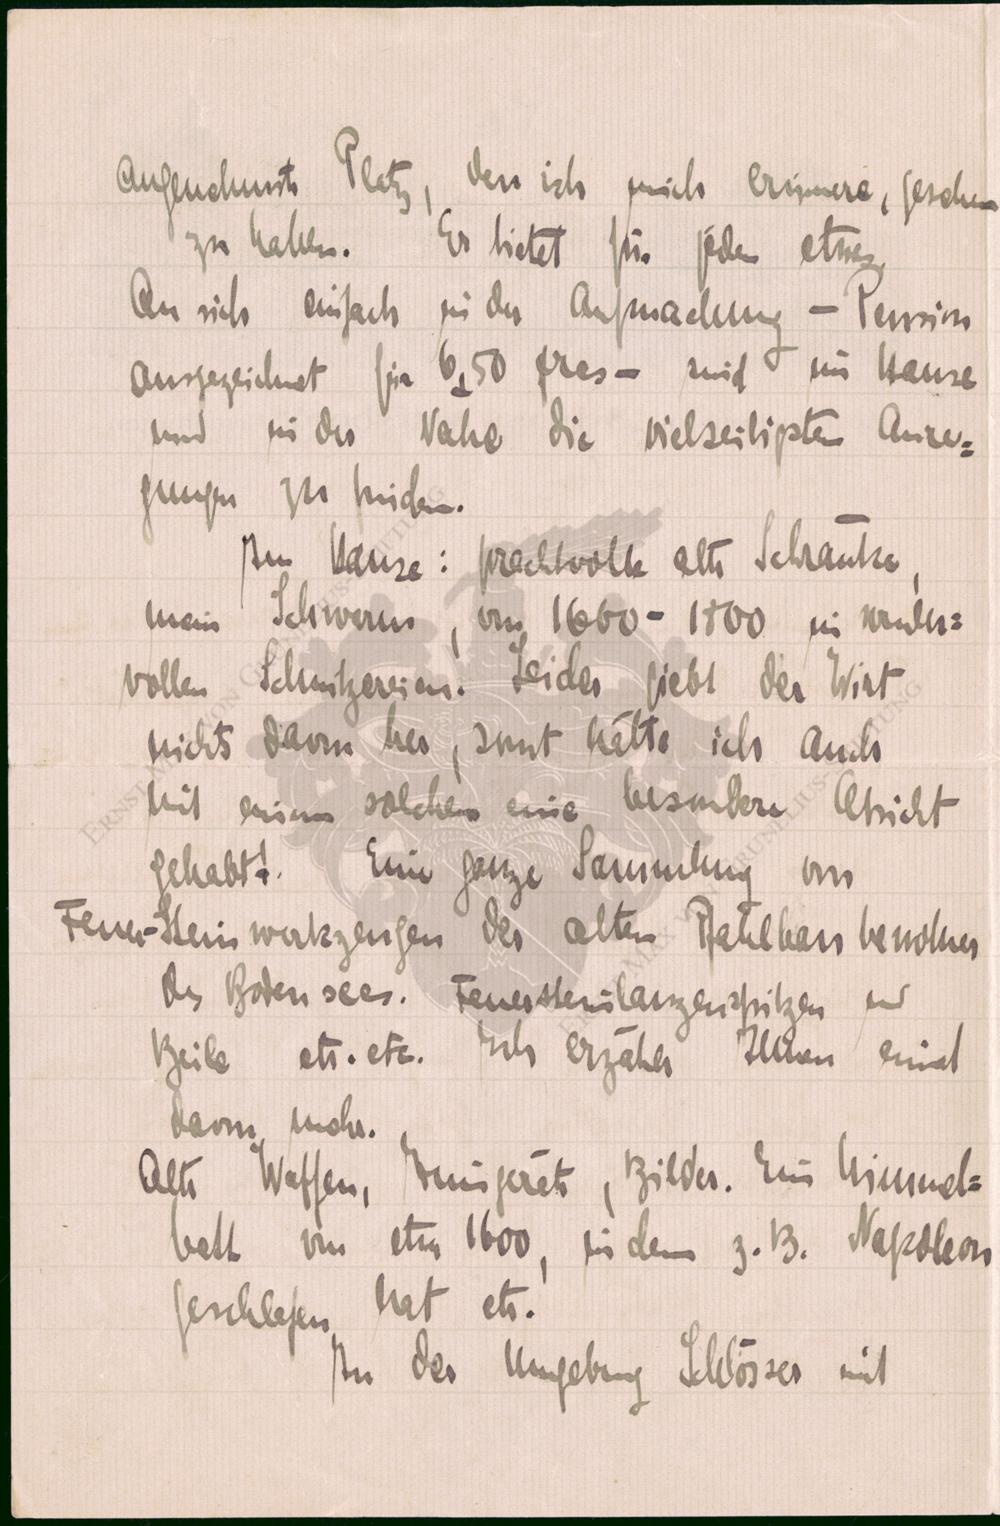 angenehmste Platz, den ich mich erinnere, gesehen
zu haben. Er bietet für jeden etwas,
An sich einfach in der Aufmachung – Pension
ausgezeichnet für 6,50 frcs – sind im Hause
und in der Nähe die vielseitigsten Anre=
gungen zu finden.
Im Hause: prachtvolle alte Schränke,
mein Schwarm, von 1600 – 1800 in wunder=
vollen Schnitzereien! Leider giebt der Wirt
nichts davon her, sonst hätte ich auch
mit einem solchen eine besondere Absicht
gehabt! Eine ganze Sammlung von
Feuer-Steinwerkzeugen der alten Pfahlbaubewohner
des Bodensees. Feuersteinlanzenspitzen und
Beile etc. etc. Ich erzähle Ihnen einmal
davon mehr.
Alte Waffen, Zinngeräte, Bilder. Ein Himmel=
bett von etwa 1600, in dem z. B. Napoleon
geschlafen hat etc.
In der Umgebung Schlösser mit
ERNST MAX VON GRUNELIUS-STIFTUNG
ERNST MAX VON GRUNELIUS-STIFTUNG